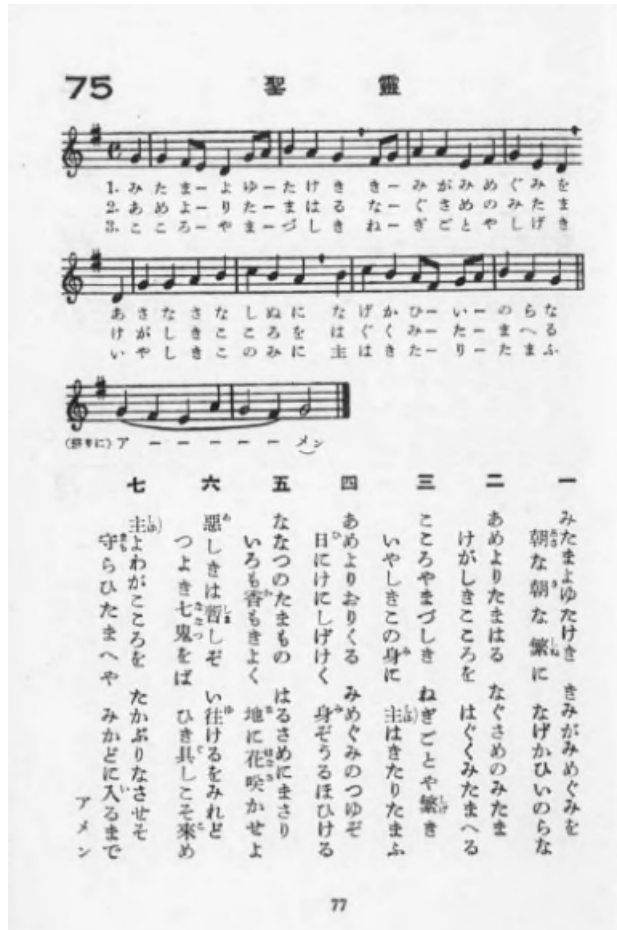 75 聖 靈
1. み た まー よ ゆー た け き きー み が み め ぐ み を
2. あ め よー り たー ま は る なー ぐ さ め の み た ま
3. こ こ ろー や まー づ し き ねー ぎ ご と や し げ き
あ さ な さ な し ぬ に な げ か ひー いー の ら な
け が し き こ こ ろ を は ぐ く みー たー ま へ る
い や し き こ の み に 主 は き たー りー た ま ふ
ア ー ー ー ー ー メン
一
みたまよゆたけき きみがみめぐみを
朝な朝な繁に なげかひいのらな
二
あめよりたまはる なぐさめのみたま
けがしきこころを はぐくみたまへる
三
こころやまづしき ねぎごとや繁き
いやしきこの身に 主はきたりたまふ
四
あめよりおりくる みめぐみのつゆぞ
日にけにしげけく 身ぞうるほひける
五
ななつのたまもの はるさめにまさり
いろも香もきよく 地に花咲かせよ
六
惡しきは暫しぞ い往けるをみれど
つよき七鬼をば ひき具しこそ來め
七
主よわがこころを たかぶりなさせそ
守らひたまへや みかどに入るまで
アメン
77